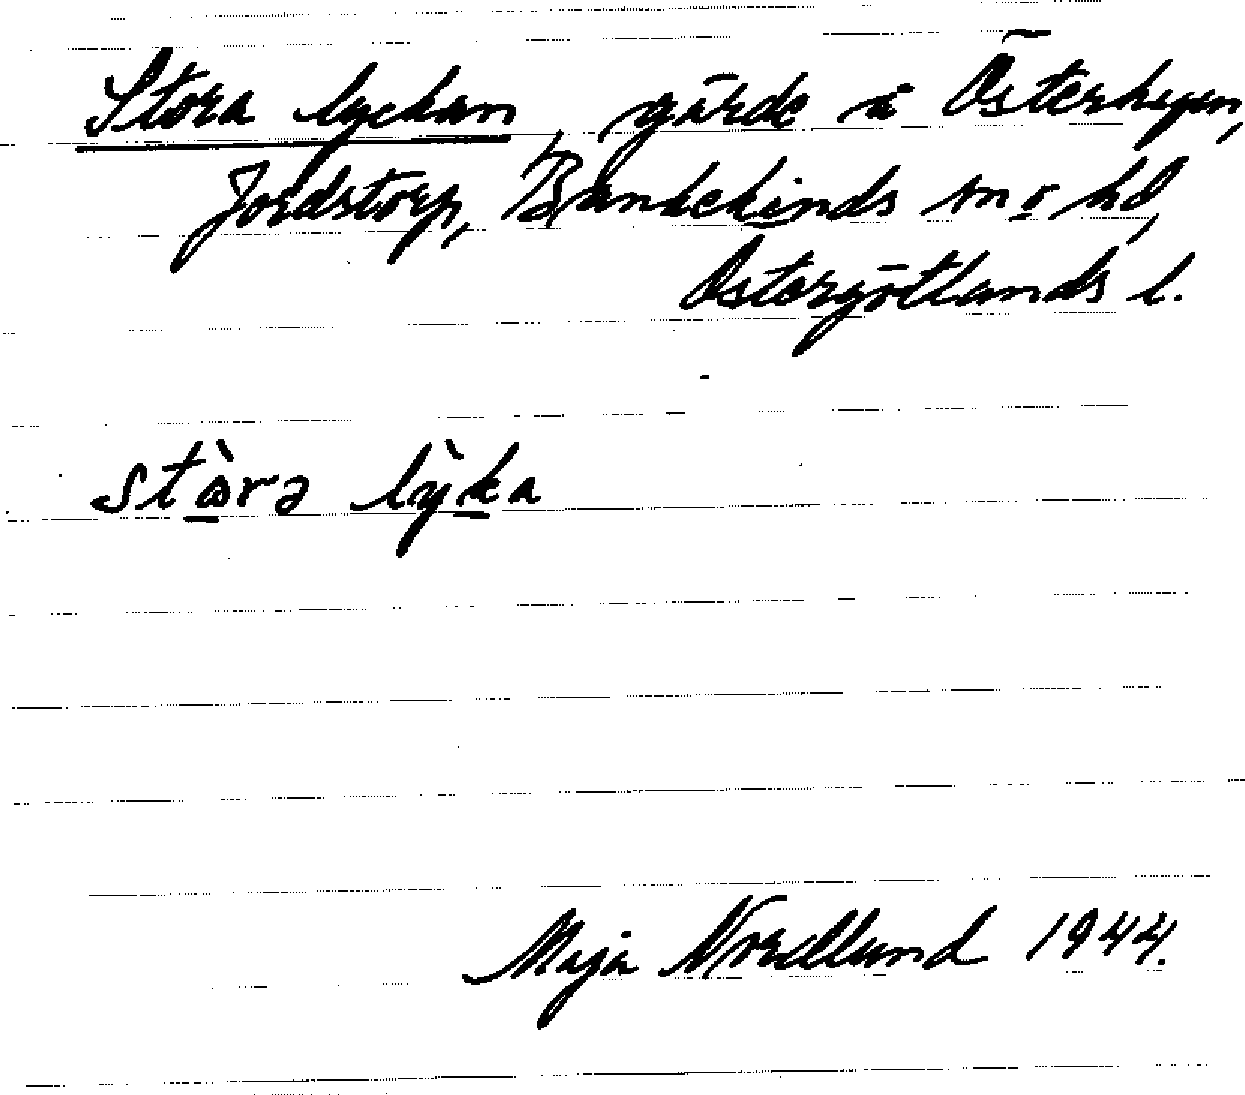 Stora lyckan, gärde å Österhagen,
Jordstorp, Bankekinds sn o hd,
Östergötlands l.
stòra lỳka
Maja Nordlund 1944.